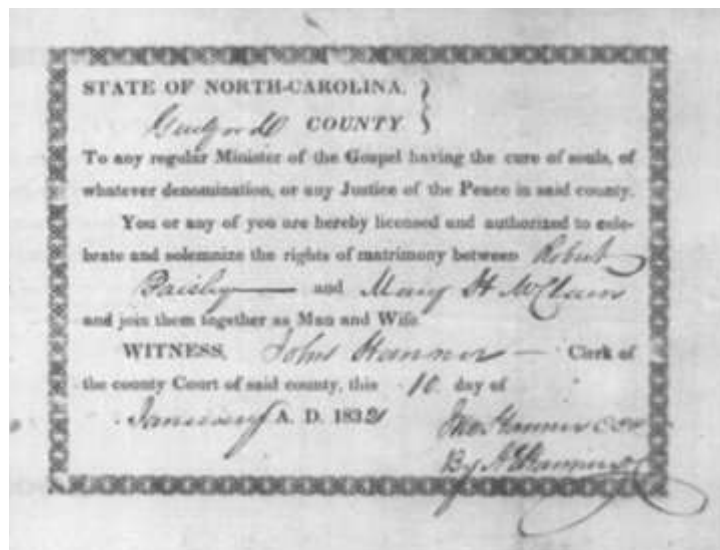 STATE OF NORTH-CAROLINA.
Guilford COUNTY
To any regular Minister of the Gospel having the cure of souls, of
whatever denomination, or any Justice of the Peace in said county.
You or any of you are hereby licensed and authorized to cele-
brate and solemnize the rights of matrimony between Robert
Paisley and Mary H McClain
and join them together as Man and Wife.
WITNESS, John Hanner Clerk of
the county Court of said county, this 10 day of
January A. D. 183
Jno. Hanner
By